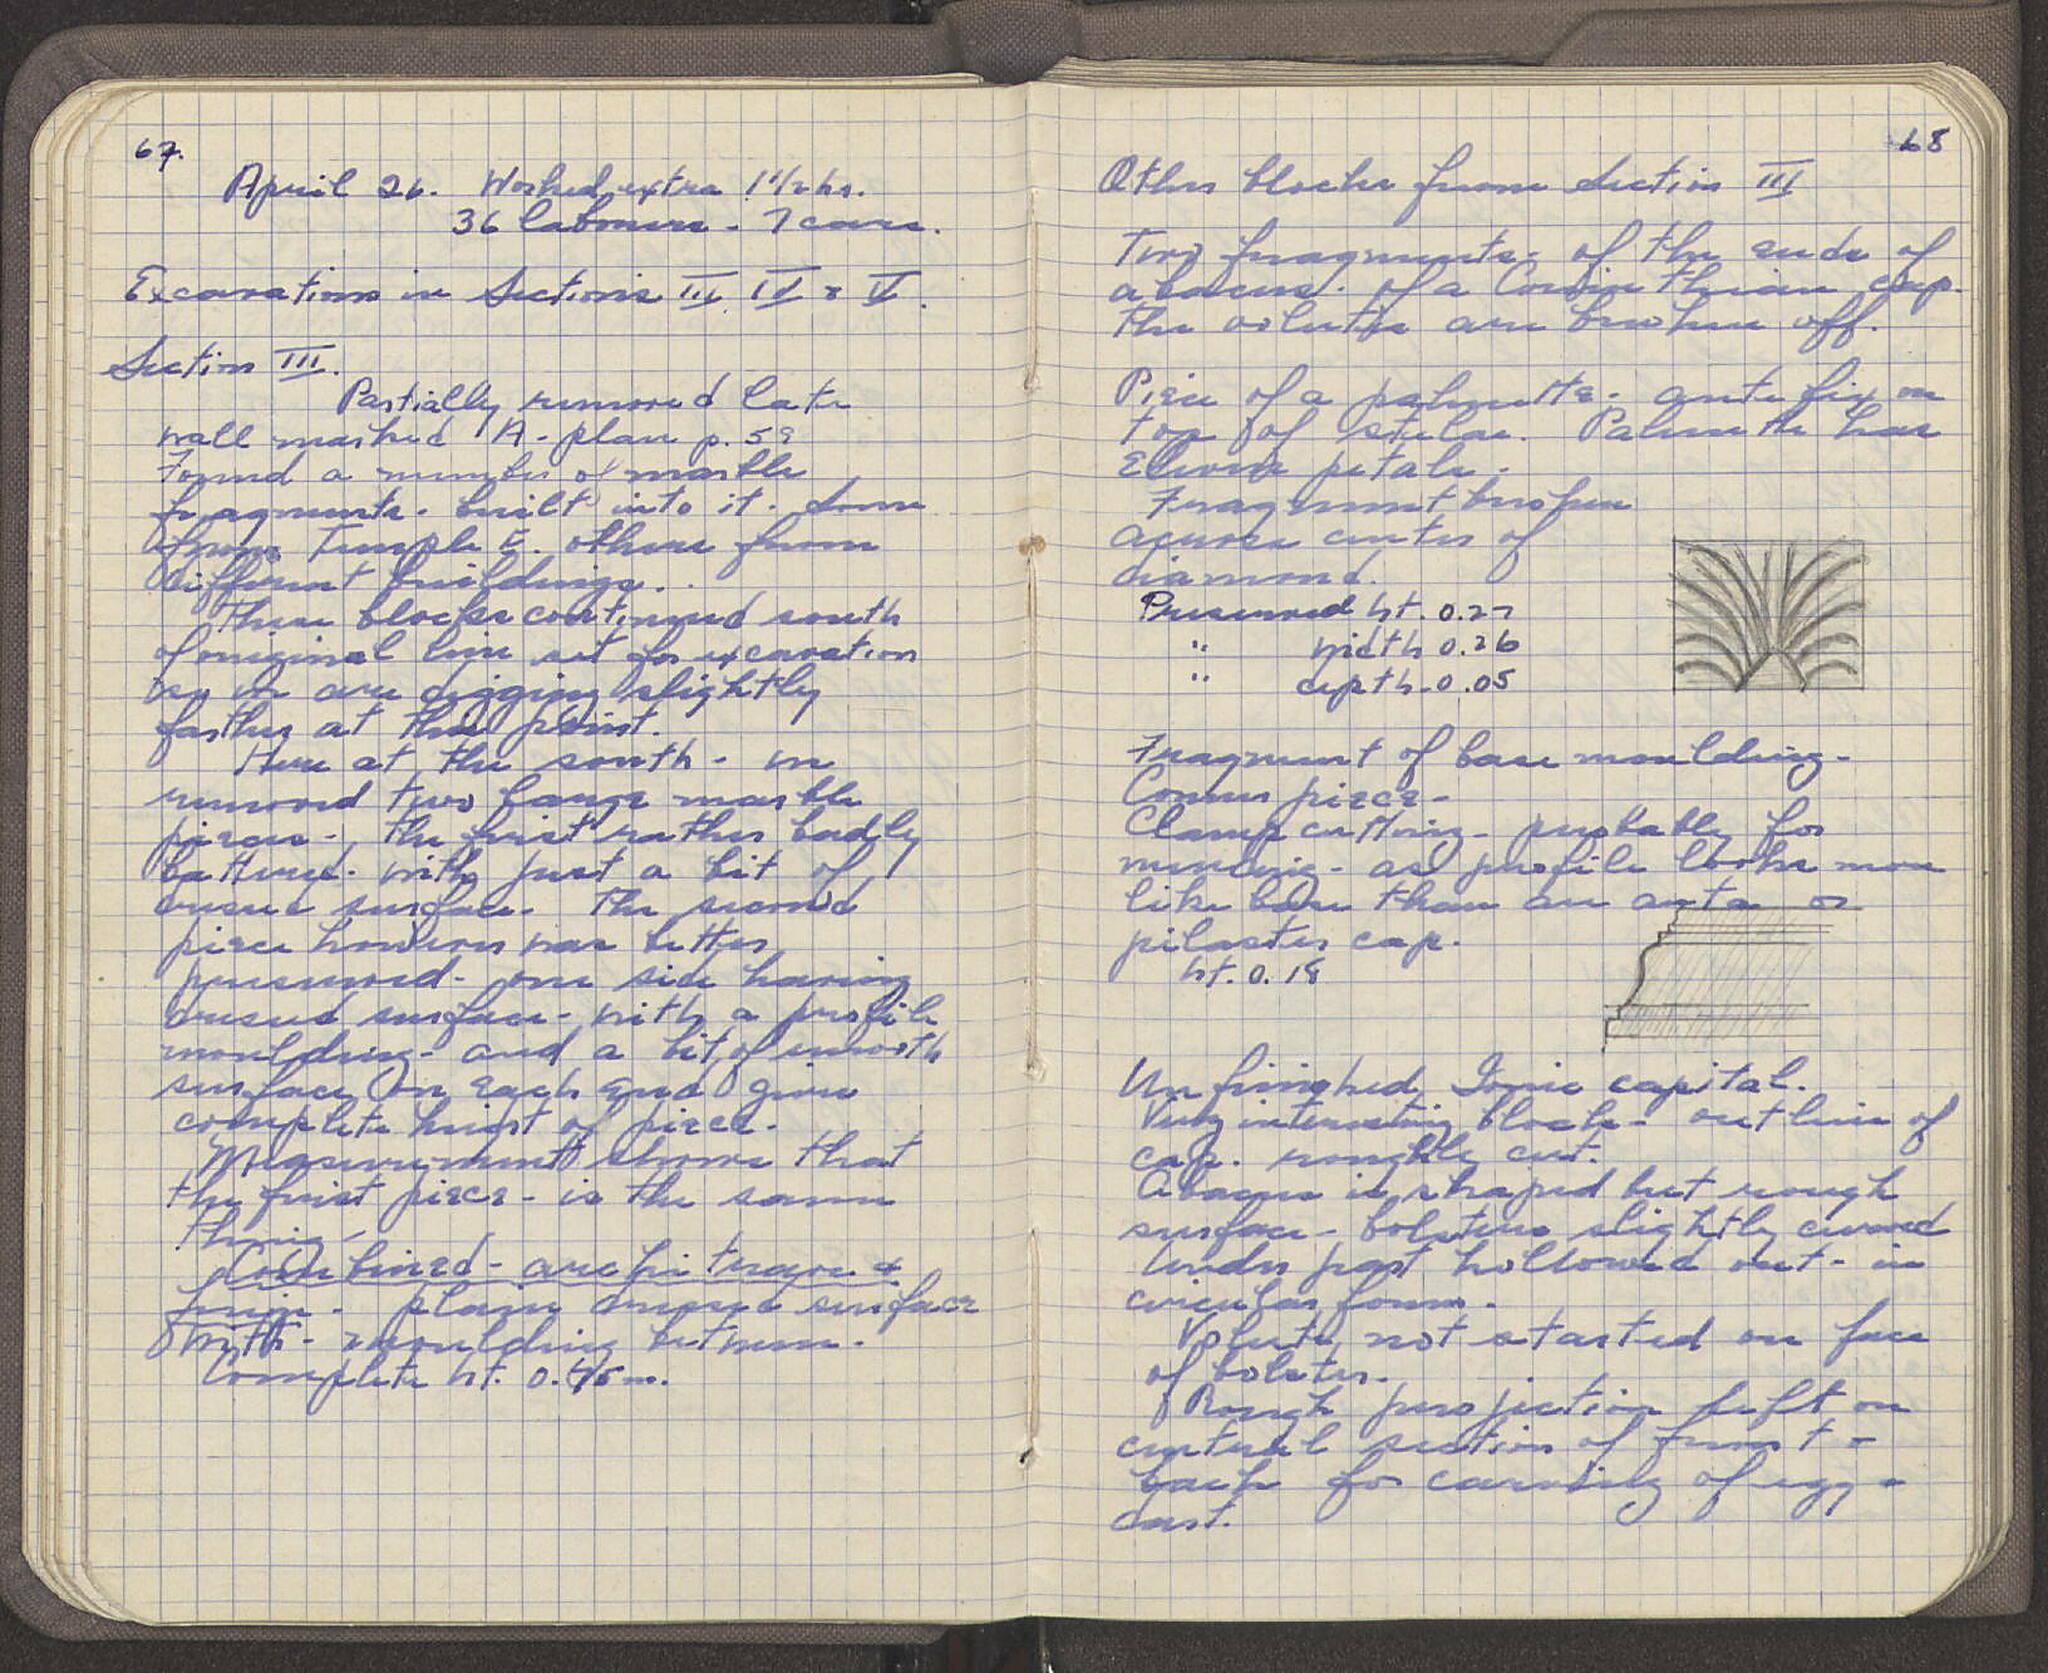 67.
April 26. Worked extra 1 1/2 hr.
36 labourers - 7 cars.
Excavations in Sections III, IV & V.
Section III.
Partially removed late
wall marked A - plan p. 59
Found a number of marble
fragments - built into it. Some
from Temple E. others from
different buildings.
These blocks continued south
of original line set for excavation
so we are digging slightly
farther at this point.
Here at the south - we
removed two large marble
pieces - the first rather badly
battered - with just a bit of
dressed surface. The second
piece however was better
preserved - one side having
dressed surface - with a profile
moulding - and a bit of smooth
surface on each end gives
complete height of piece.
Measurement shows that
the first piece - is the same
thing -
Combined - architrave &
frieze - plain dressed surface
with - moulding between.
Complete ht. 0.45 m.
68
Other blocks from Section III
Two fragments - of the ends of
abacus - of a Corinthian cap.
the volutes are broken off.
Piece of a palmette - antefix on
top of stelae. Palmette has
eleven petals.
Fragment broken
across center of
diamond.
Preserved ht. 0.27
" width 0.26
" depth - 0.05
Fragment of base moulding -
Corner piece -
Clamp cutting - probably for
mending - as profile looks more
like base than an anta or
pilaster cap.
ht. 0.18
Unfinished Ionic capital.
Very interesting block - outline of
cap. roughly cut.
Abacus is shaped but rough
surface - bolsters slightly curved
Under part hollowed out - in
circular form.
Volute not started on face
of bolster.
Rough projection left on
central section of front &
back for carving of egg &
dart.